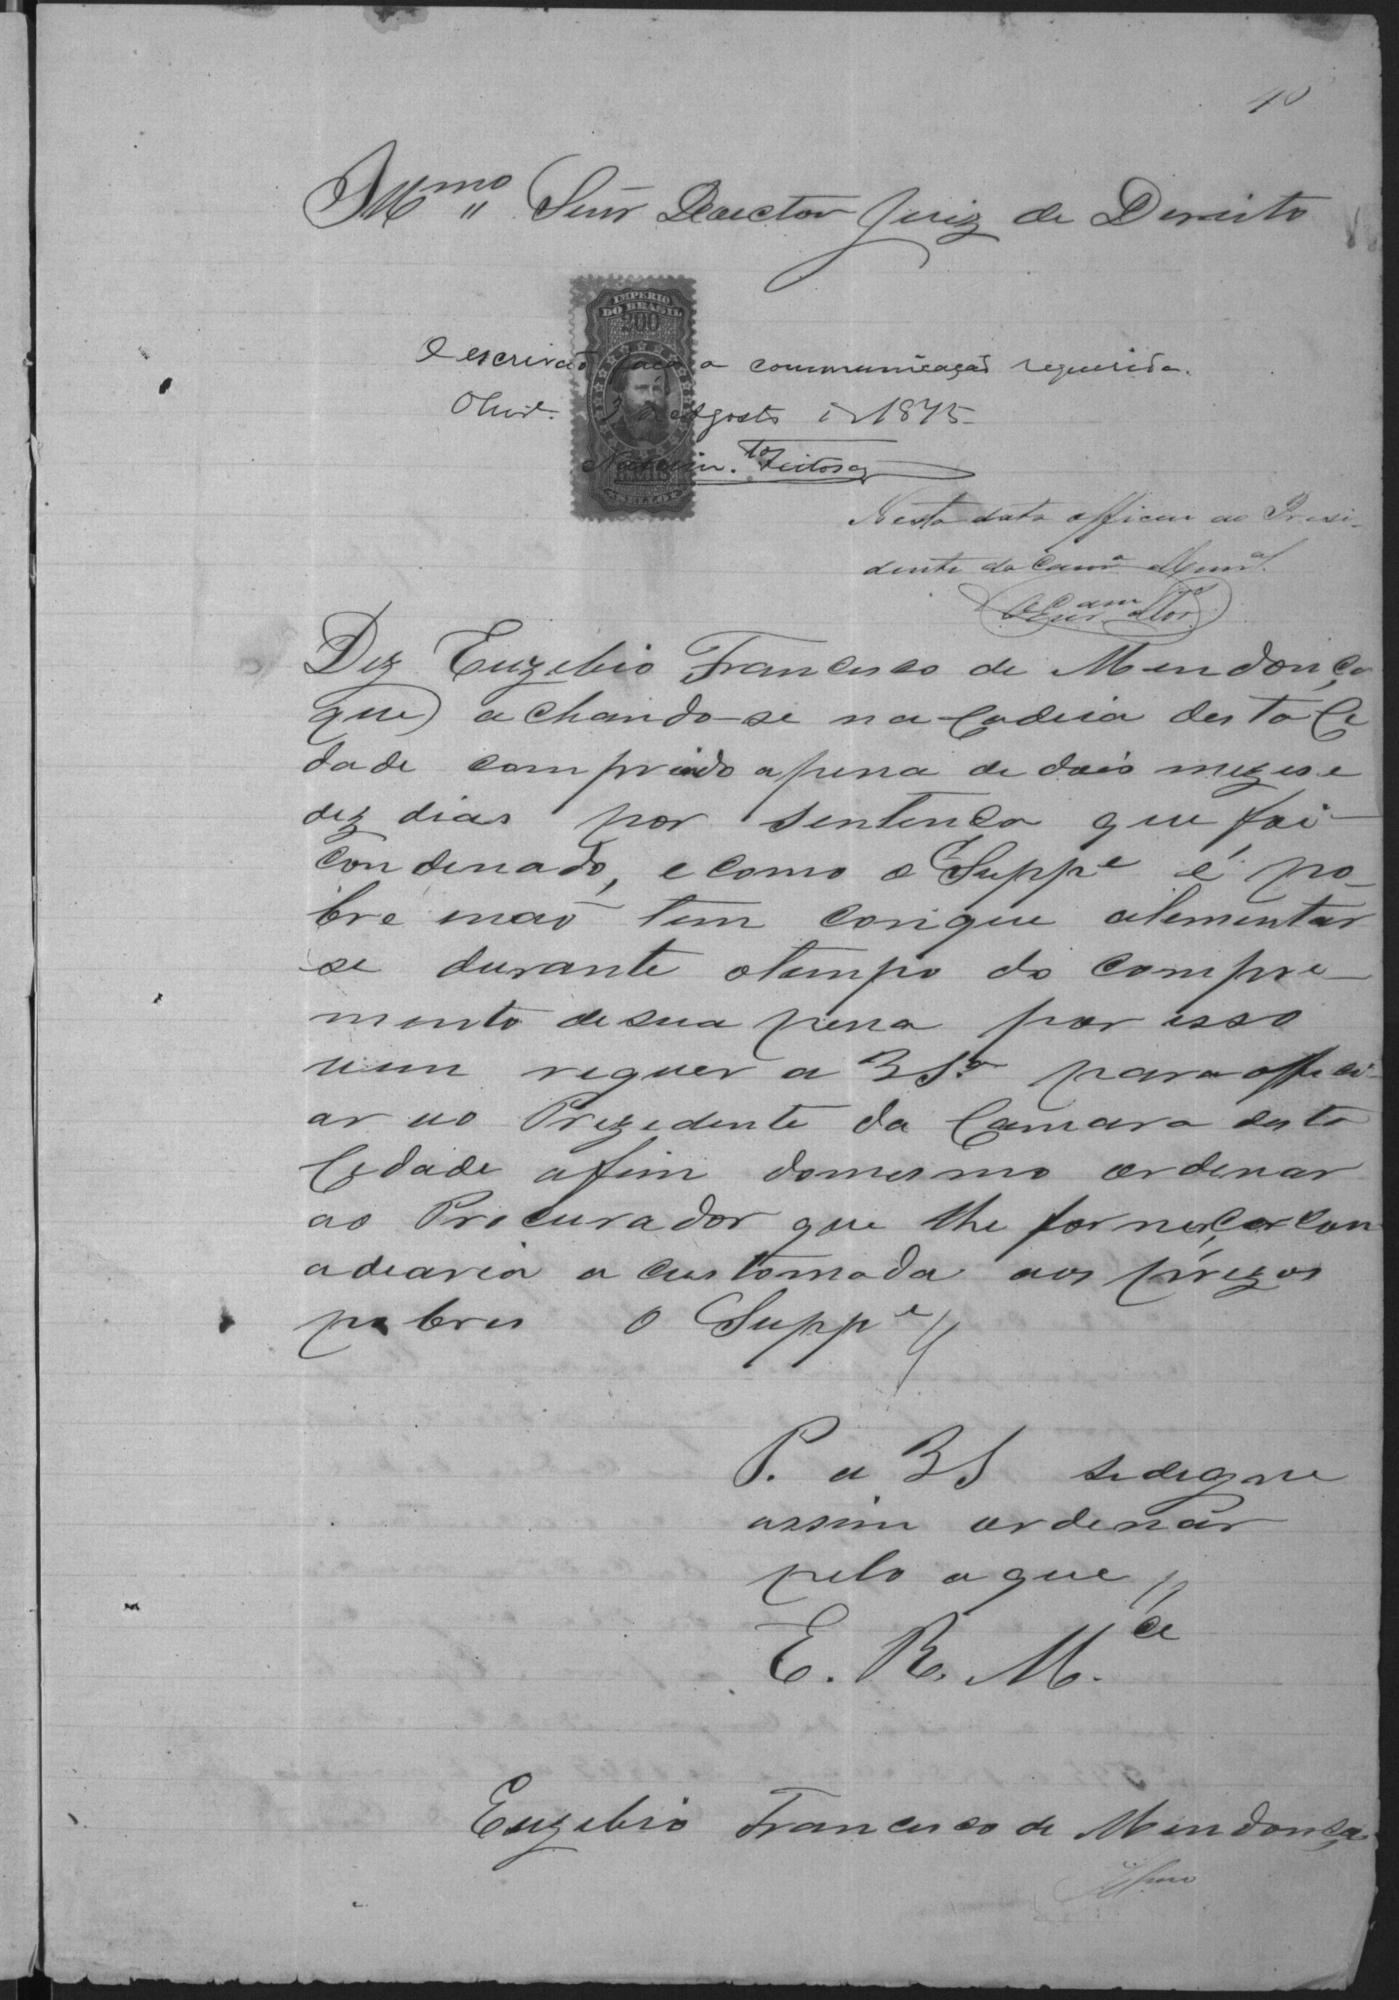 10
Illmo Sñr Doector Juiz de Dereito
IMPERIO
DO BRASIL
200
O escrivão faça a communicação requerida.
3 de Agosto de 1875
Nascim.to Feitosa
Nesta data officiei ao Presi-
dente da Camra Munal.
Diz Euzebio Francisco de Mendonça
que achando-se na Cadeia desta Ce
dade comprindo apena de dois mezes e
dez dias por sentença que foi
condenado, e como o Suppe é po-
bre enão tem conque alementar
se durante otempo do compre-
mento desua pena por isso
vem requer a VSa para offeci-
ar ao Prezedente da Camara desta
Cedade afim domesmo ordenar
ao Procurador que lhe forneça con
adearia acustomada aos prezos
pobres O Suppe
P. a VS sedegne
assim ordenar
pelo aque
E. R. Mce
Euzebio Francisco de Mendonça